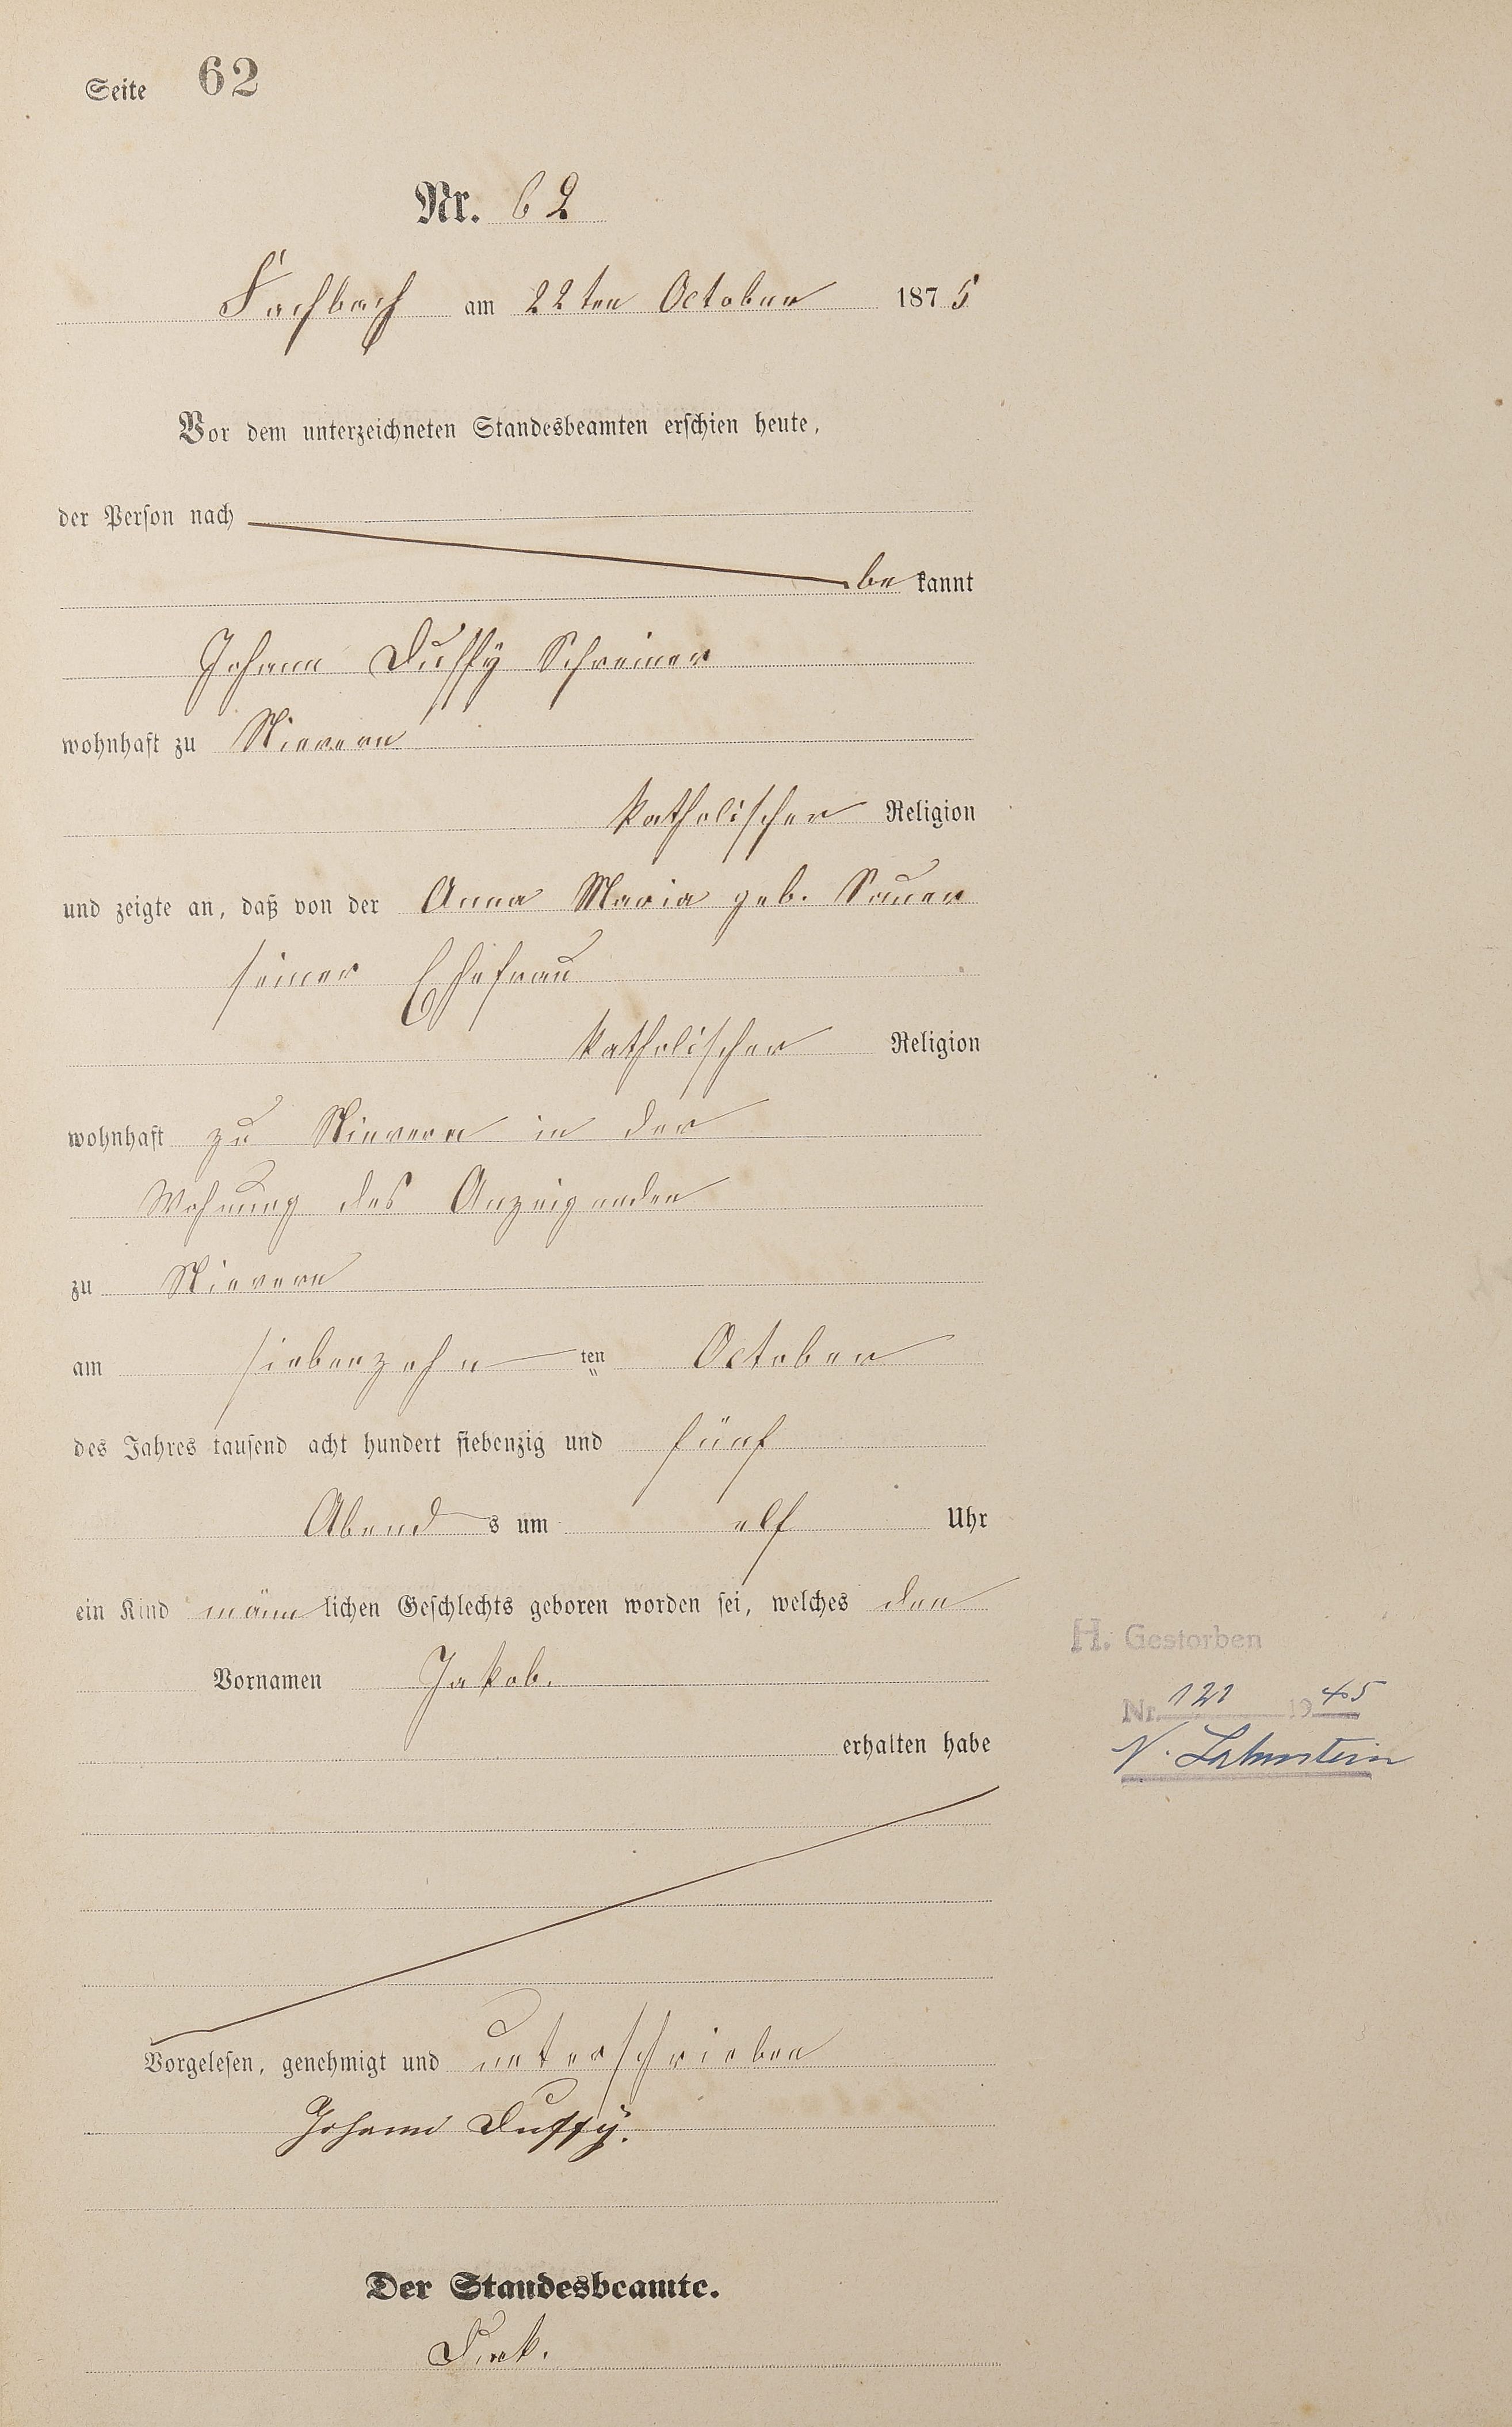 Seite 62
Nr. 62
Fachbach am 22ten October 1875
Vor dem unterzeichneten Standesbeamten erschien heute,
der Person nach
be kannt
Johann Duffÿ Schreiner
wohnhaft zu Nievern
katholischer Religion
und zeigte an, daß von der Anna Maria geb. Sauer
seiner Ehefrau
katholischer Religion
wohnhaft zu Nievern in der
Wohnung des Anzeigenden
zu Nievern
am siebenzehn ten October
des Jahres tausend acht hundert siebenzig und fünf
Abend s um elf Uhr
ein Kind männ lichen Geschlechts geboren worden sei, welches den
Vornamen Jakob.
erhalten habe
H. Gestorben
Nr. 121 1945
N. Lahnstein
Vorgelesen, genehmigt und unterschrieben
Johann Duffÿ.
Der Standesbeamte.